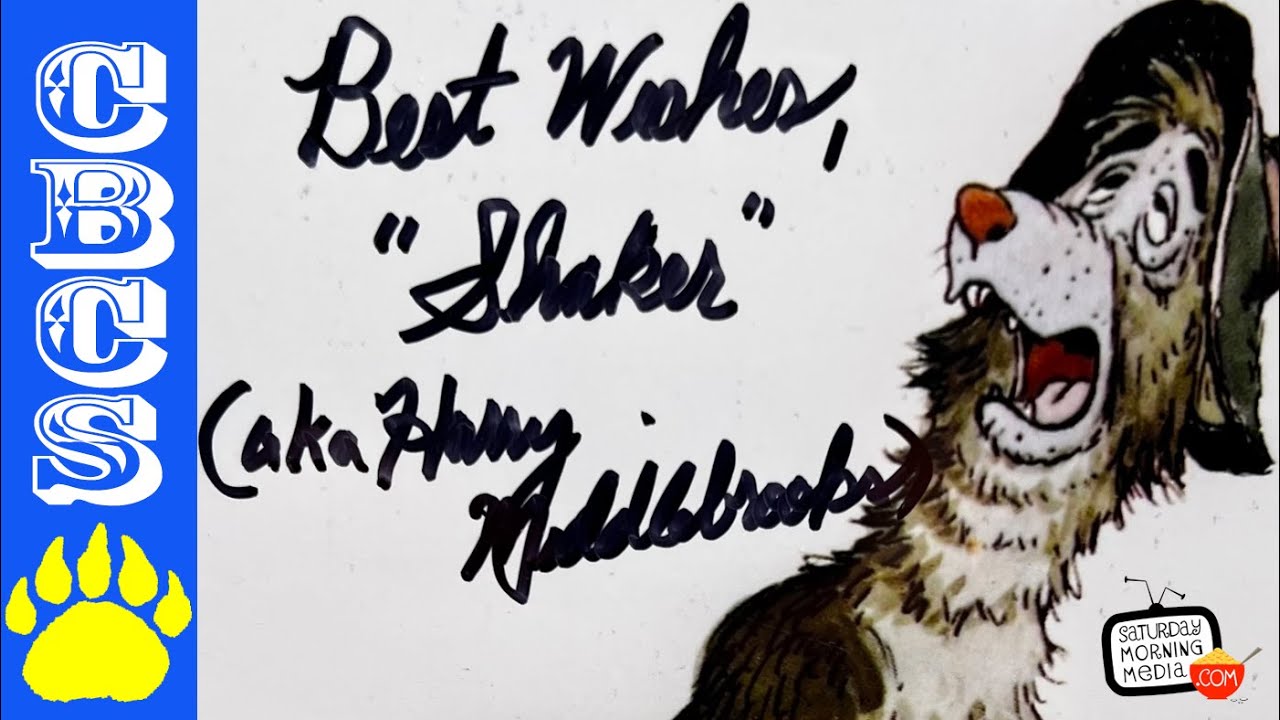 CBCS
Best Wishes,
"Shaker"
(aka Harry
Middlebrooks)
SATURDAY
MORNING
MEDIA
.COM